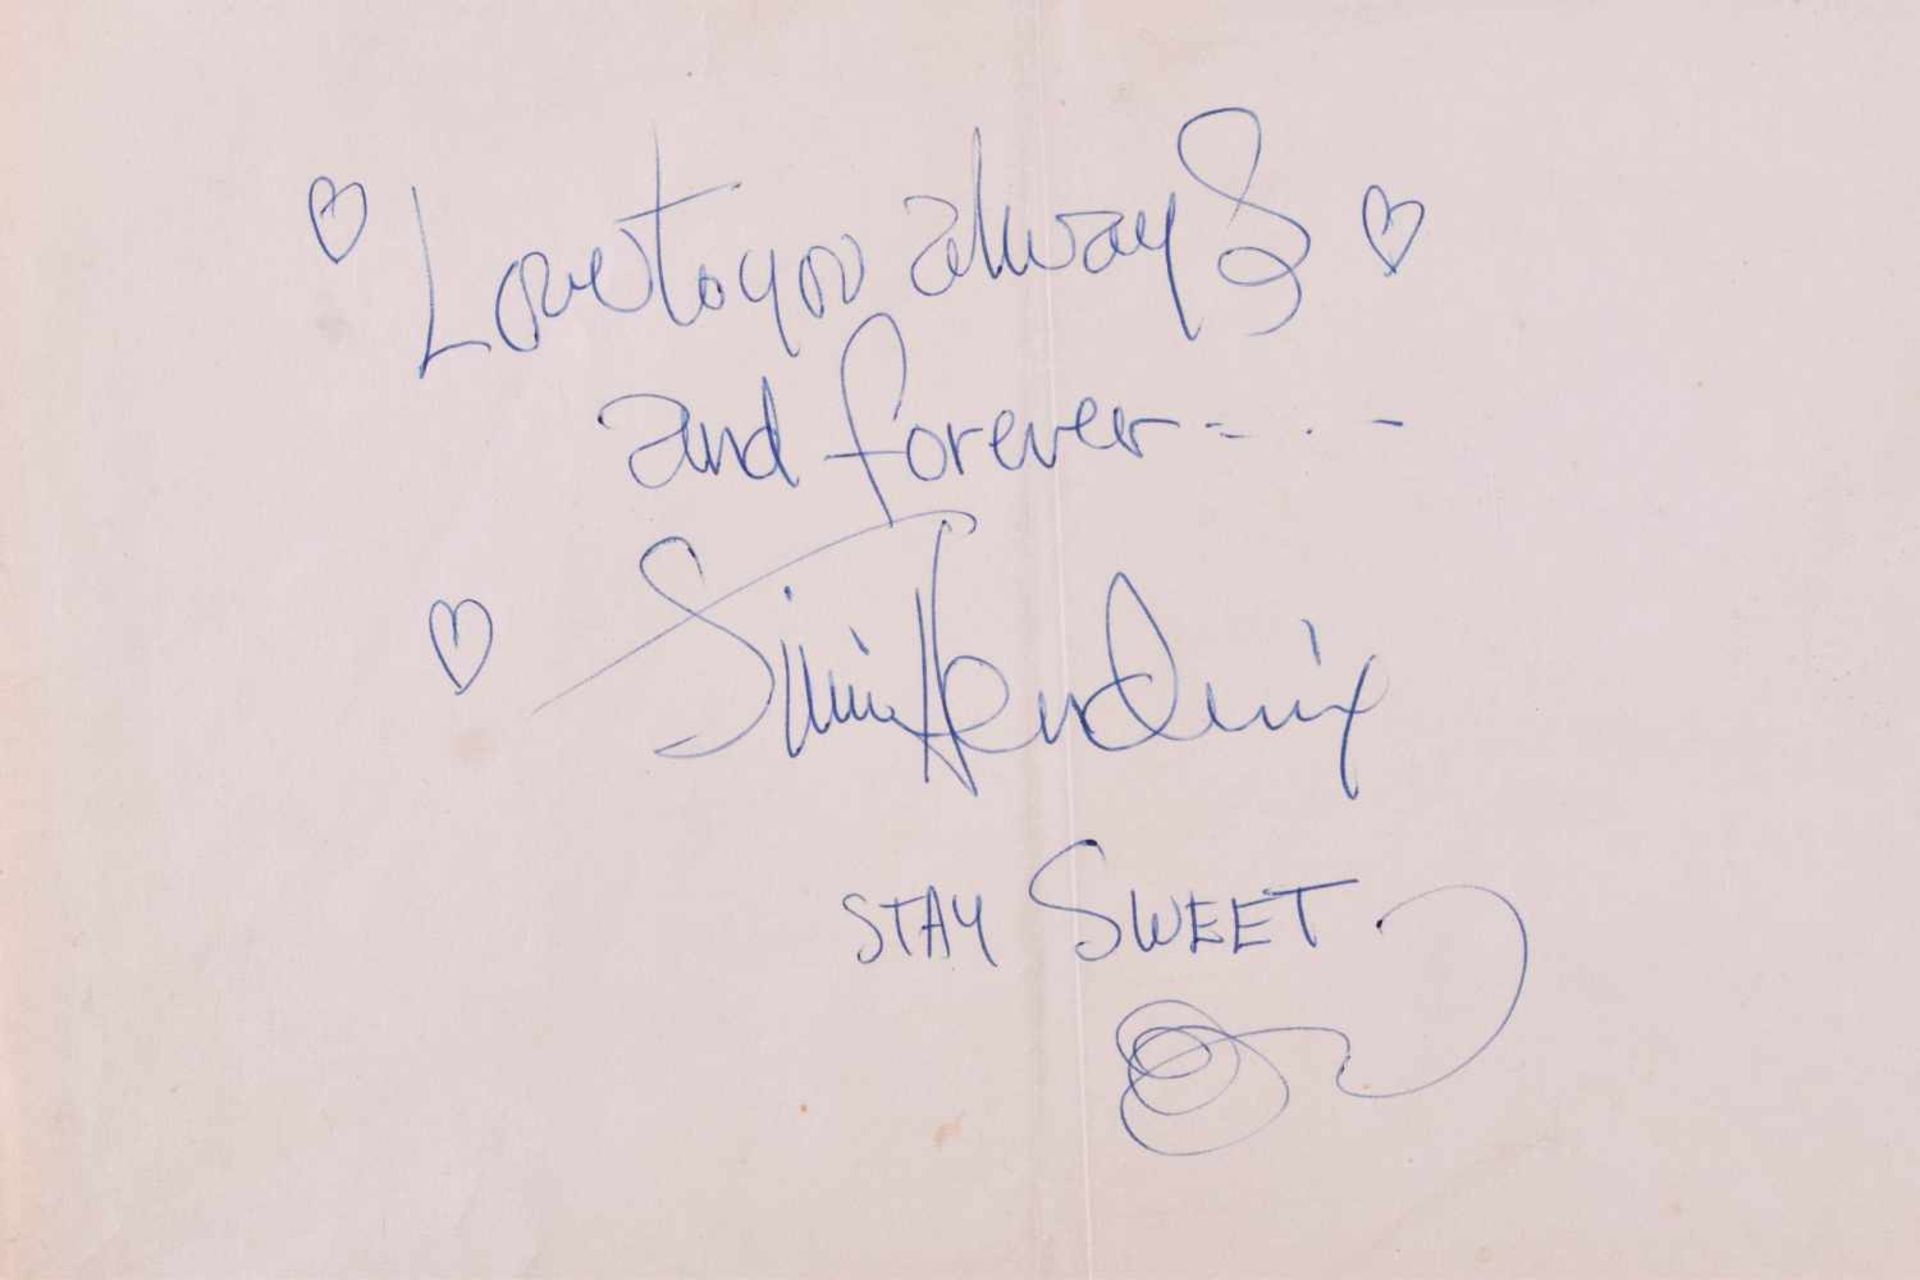 ♡ Love to you always ♡
and forever - = . -
♡ Jimi Hendrix
STAY SWEET